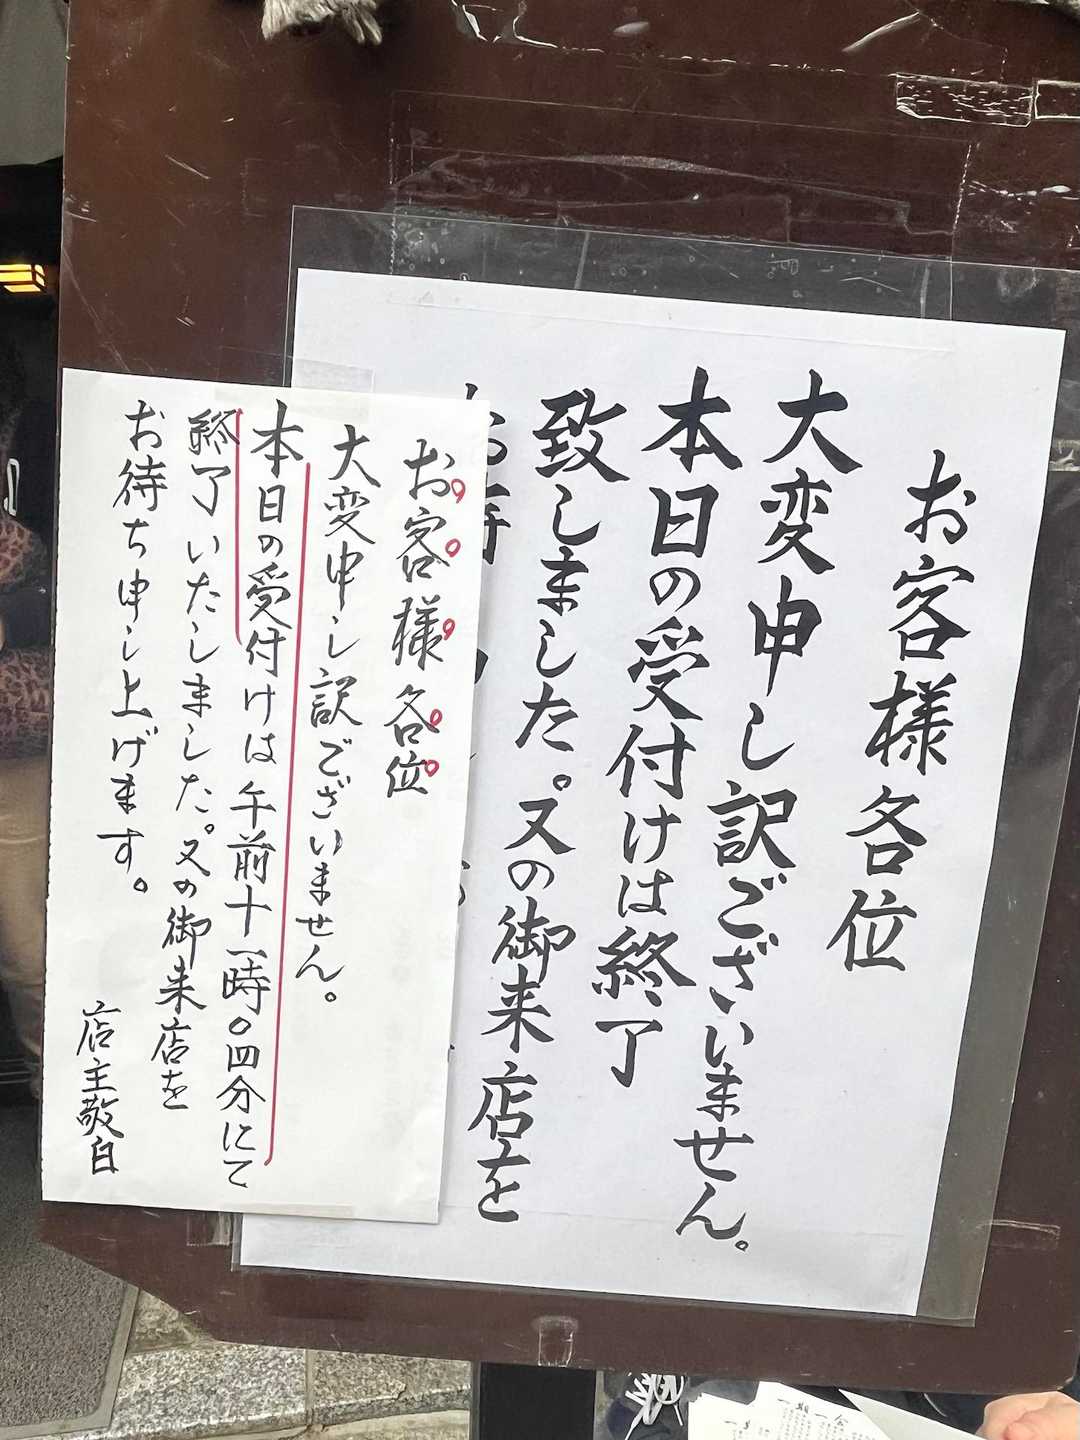 お客様各位
大変申し訳ございません。
本日の受付けは終了
致しました。又の御来店を
お客様各位
大変申し訳ございません。
本日の受付けは午前十一時〇四分にて
終了いたしました。又の御来店を
お待ち申し上げます。
店主敬白
一期一会